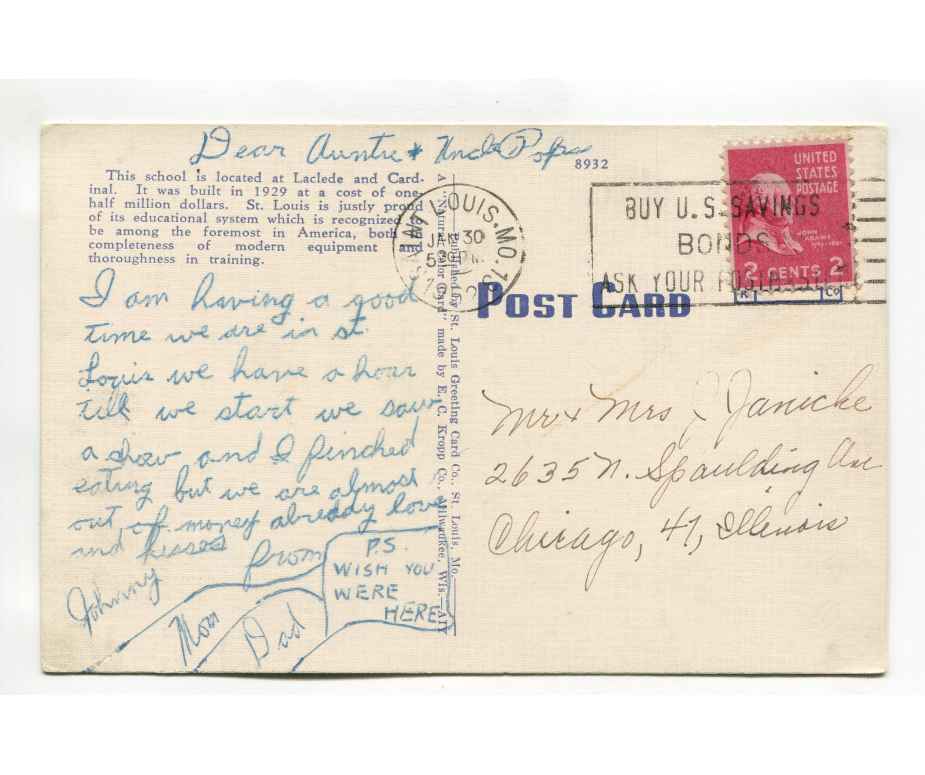 Dear Auntie + Uncle
8932
This school is located at Laclede and Card-
inal. It was built in 1929 at a cost of one-
half million dollars. St. Louis is justly proud
of its educational system which is recognized to
be among the foremost in America, both in
completeness of modern equipment and
thoroughness in training.
I am having a good
time we are in st.
Louis we have a hour
till we start we saw
a show and I pinched
eating but we are almost
out of money abreddy love
and kisses from
Johnny
Mom
Dad
P.S.
WISH YOU
WERE
HERE
A "Natural Color Card" made by E. C. Kropp Co., Milwaukee, Wis.
Published by St. Louis Greeting Card Co., St. Louis, Mo.
POST CARD
SAINT LOUIS, MO.
JAN 30
5 30 PM
BUY U.S. SAVINGS
BONDS
ASK YOUR POSTMASTER
UNITED
STATES
POSTAGE
JOHN
ADAMS
2 CENTS 2
K Co
Mr + Mrs J Janicke
2635 N. Spaulding Ave
Chicago, 47, Illinois